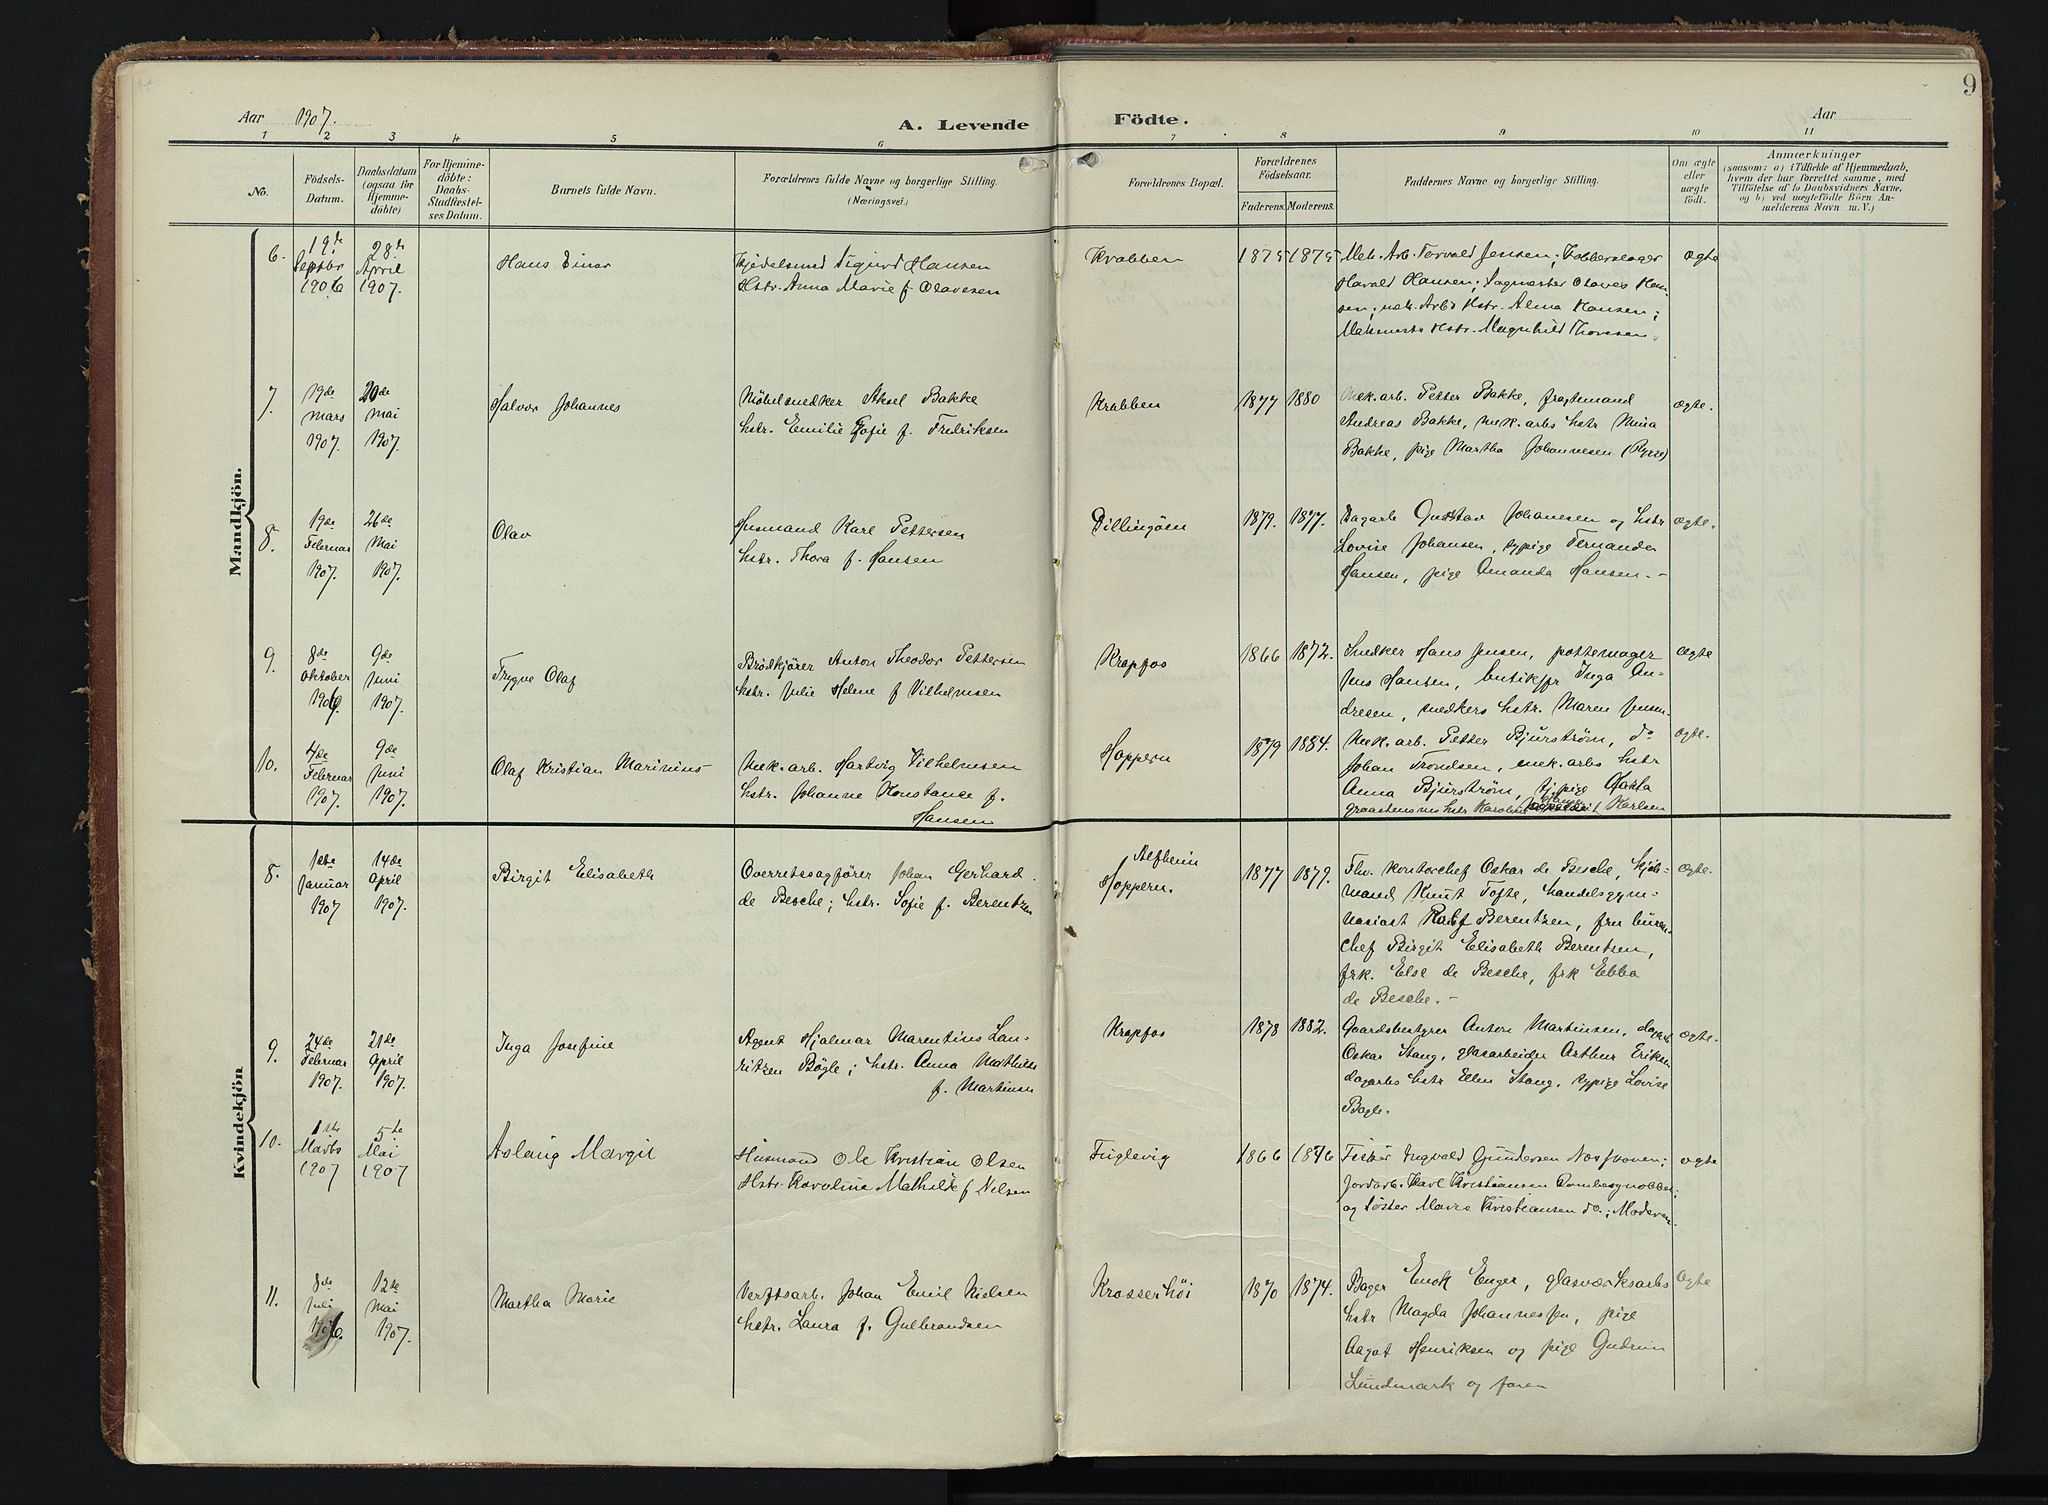 9
Aar 1907.
A. Levende Födte.
Aar
1 2 3 4 5 6 7 8 9 10 11
No.
Födsels-Datum.
Daabsdatum (ogsaa for Hjemme-döbte)
For Hjemme-döbte: Daabs-Stadfæstel-ses Datum.
Barnets fulde Navn.
Forældrenes fulde Navne og borgerlige Stilling. (Næringsvei.)
Forældrenes Bopæl.
Forældrenes Födselsaar.
Faderens. Moderens.
Faddernes Navne og borgerlige Stilling.
Om ægte eller uægte födt.
Anmærkninger
(saasom: a) i Tilfælde af Hjemmedaab, hvem der har forrettet samme, med Tilföielse af to Daabsvidners Navne, og b) ved uægtefödte Börn An-melderens Navn m. V.)
Mandkjön.
6. 19de Septbr 1906 28de April 1907.
Hans Einar
Sigurd Hansen
Hstr. Anna Marie f. Olavesen
Krabben
1875 1875
Mek. Arb. Torvald Jensen; Kobberslager
Harald Hansen; Olaves Han-
sen; mek. Arbs Hstr. Alma Hansen;
Hstr. Magnhild Thoresen.
ægte
7. 19de mars 1907. 20de mai 1907.
Halvor Johannes
Möbelsnedker Aksel Bakke
hstr. Emilie Sofie f. Fredriksen
Krabben
1877 1880
Mek. arb. Petter Bakke, fragtemand
Andreas Bakke, mek. arbs hstr Mina
Bakke, pige Martha Johannesen (Rygge)
ægte.
8. 19de Februar 1907. 26de Mai 1907.
Olav
Husmand Karl Pettersen
hstr. Thora f. Hansen
Dillingöen
1879. 1877.
Dagarb Gustav Johansen og hstr
Lovise Johansen, sypige Fernanda
Hansen, pige Amanda Hansen. -
ægte.
9. 8de Oktober 1906. 9de Juni 1907.
Trygve Olaf
Brödkjörer Anton Theodor Pettersen
hstr. Julie Helene f Vilhelmsen
Krapfos
1866 1872.
Snedker Hans Jensen, pottemager
Jens Hansen, butikfr Inga An-
dresen, snedkers hstr. Maren Jensen.
ægte
10. 4de Februar 1907. 9de Juni 1907.
Olaf Kristian Marinius
Mek. arb. Hartvig Vilhelmsen
hstr. Johanne Konstance f.
Hansen
Hoppern
1879 1884.
Mek. arb. Petter Bjurström, do
Johan Trondsen, mek. arbs hstr
Anna Bjurström, pige
hstr Karoline Karlsen
ægte.
Kvindekjön
8. 1ste Januar 1907 14de April 1907.
Birgit Elisabeth
Overretssagförer Johan Gerhard
de Besche; hstr. Sofie f. Berentzen
Alfheim
Hoppern.
1877 1879.
Fhv. kontorchef Oskar de Besche, kjöb-
mand Knut Tofte, handelsgym-
nasiast Ralf Berentzen, fru bureau-
chef Birgit Elisabeth Berentzen,
frk. Else de Besche, frk Ebba
de Besche. -
ægte.
9. 24de Februar 1907. 21de April 1907.
Inga Josefine
Agent Hjalmar Marentius Lau-
ritzen Bögle; hstr. Anna Mathilde
f. Martinsen
Krapfos
1878 1882.
Gaardsbestyrer Anton Martinsen, dagarb.
Oskar Stang, glasarbeider Arthur Eriksen
dagarbs hstr Ellen Stang, sypige Lovise
Bögle.
ægte.
10. 1ste Marts 1907 5te Mai 1907
Aslaug Margit
Husmand Ole Kristian Olsen
Hstr. Karoline Mathilde f Nilsen
Fuglevig
1866 1876
Fisker Ingvald Gundersen
Jordarb. Karl Kristiansen
og Söster Marie Kristiansen do.; Moderen.
ægte
11. 8de Juli 1906. 12de Mai 1907.
Martha Marie
Verftsarb. Johan Emil Nielsen
hstr. Laura f. Gulbrandsen
Krosserhöi
1870 1874.
Bager Enok Enger, glasværksarbs
hstr Magda Johannessen, pige
Aagot Henriksen og pige Gudrun
Lundmark og faren
ægte